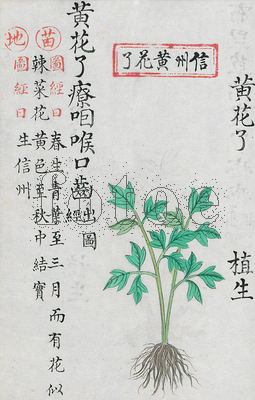 黄花了
植生
信州黄花了
黄花了療咽喉口齒出圖經
苗圖經曰春生青葉至三月而有花似
辣菜花黄色至秋中結實
地圖經曰生信州